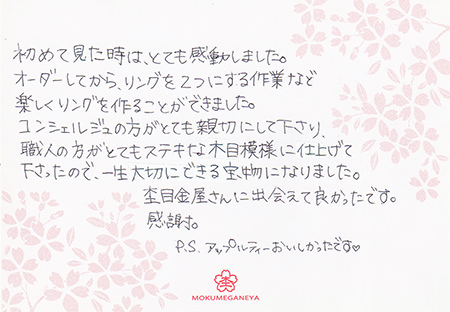 初めて見た時は、とても感動しました。
オーダーしてから、リングを2つにする作業など
楽しくリングを作ることができました。
コンシェルジュの方がとても親切にして下さり、
職人の方がとてもステキな木目模様に仕上げて
下さったので、一生大切にできる宝物になりました。
杢目金屋さんに出会えて良かったです。
感謝。
P.S. アップルティーおいしかったです♡
MOKUMEGANEYA